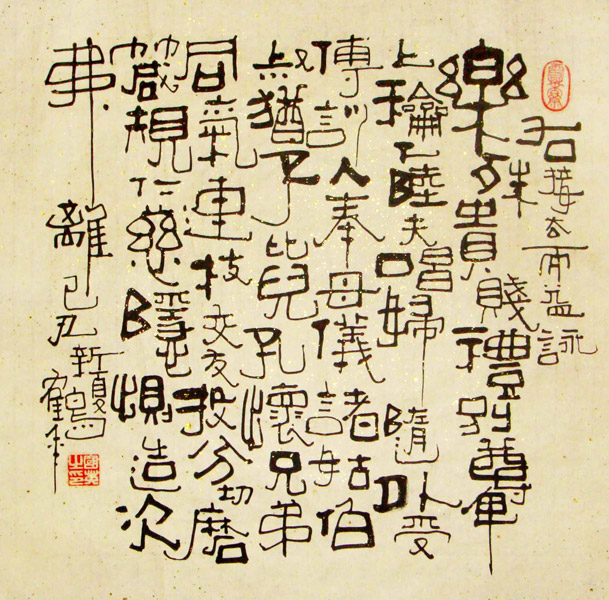 右接去而益詠
樂殊貴賤禮別尊卑
上龢下睦夫唱婦隨外受
傅訓入奉母儀諸姑伯
叔猶子比兒孔懷兄弟
同氣連枝交友投分切磨
箴規仁慈隱惻造次
弗離己丑新夏